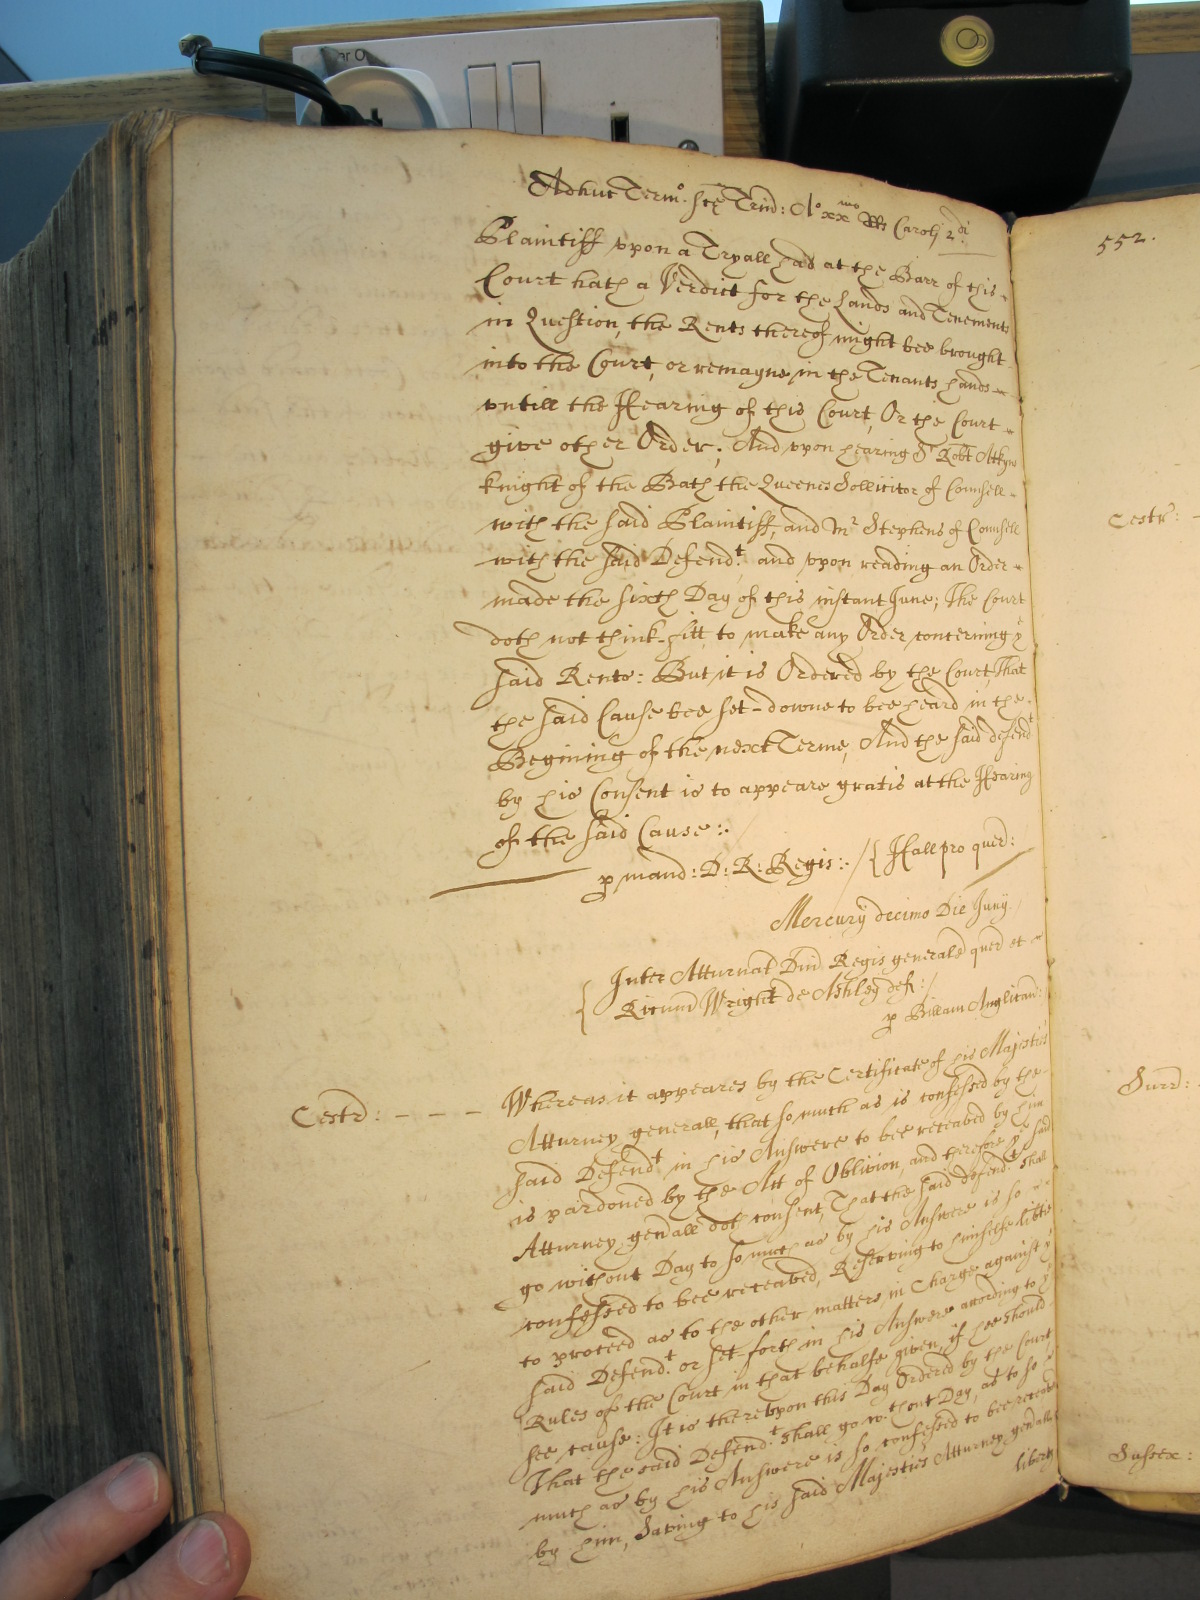 Adhuc Term.o Sce Trin: Ao xxmo Rs Caroli 2di
552.
Plaintiff upon a Tryall had at the Barr of this
Court hath a Verdict for the Lands and Tenements
in Question, the Rents thereof might bee brought
into the Court, or remayne in the Tenants hands
untill the Hearing of this Court, Or the Court
give other Order; And upon hearing Sr Robt Atkyns
Knight of the Bath the Queenes Sollicitor of Counsell
with the said Plaintiff, and Mr Stephens of Counsell
with the said Defend.t and upon reading an Order
made the sixth Day of this instant June; The Court
doth not think fitt to make any Order concerning ye
said Rents: But it is Ordered by the Court, That
the said Cause bee set-downe to bee heard in the
Begining of the next Terme, And the said defend.t
by his Consent is to appeare gratis at the Hearing
of the said Cause:.
p mand: D: R: Regis:. / { Hall pro quer:
Mercurij decimo Die Junij.
{ Inter Atturnat Dni Regis general quer et
Ricum Wright de Ashley def: /
p Billam Anglican:
Cestr: - - - Whereas it appeares by the Certificate of his Majesties
Atturney generall, that so much as is confessed by the
said Defend.t in his Answere to bee receaved by him
is pardoned by the Act of Oblivion, and therefore ye said
Atturney gen̄all doth consent, That the said defend.t shall
go without Day to so much as by his Answere is so
confessed to bee receaved, Reserving to himselfe libtie
to proceed as to the other matters in Charge against ye
said Defend.t or set-forth in his Answere according to ye
Rules of the Court in that behalfe given, if hee should
see cause: It is thereupon this Day Ordered by the Court
That the said Defend.t shall go w.thout Day, as to so
much as by his Answere is so confessed to bee receaved
by him, Saving to his said Majesties Atturney gen̄all
liberty
Cestr:
Surr:
Sussex: